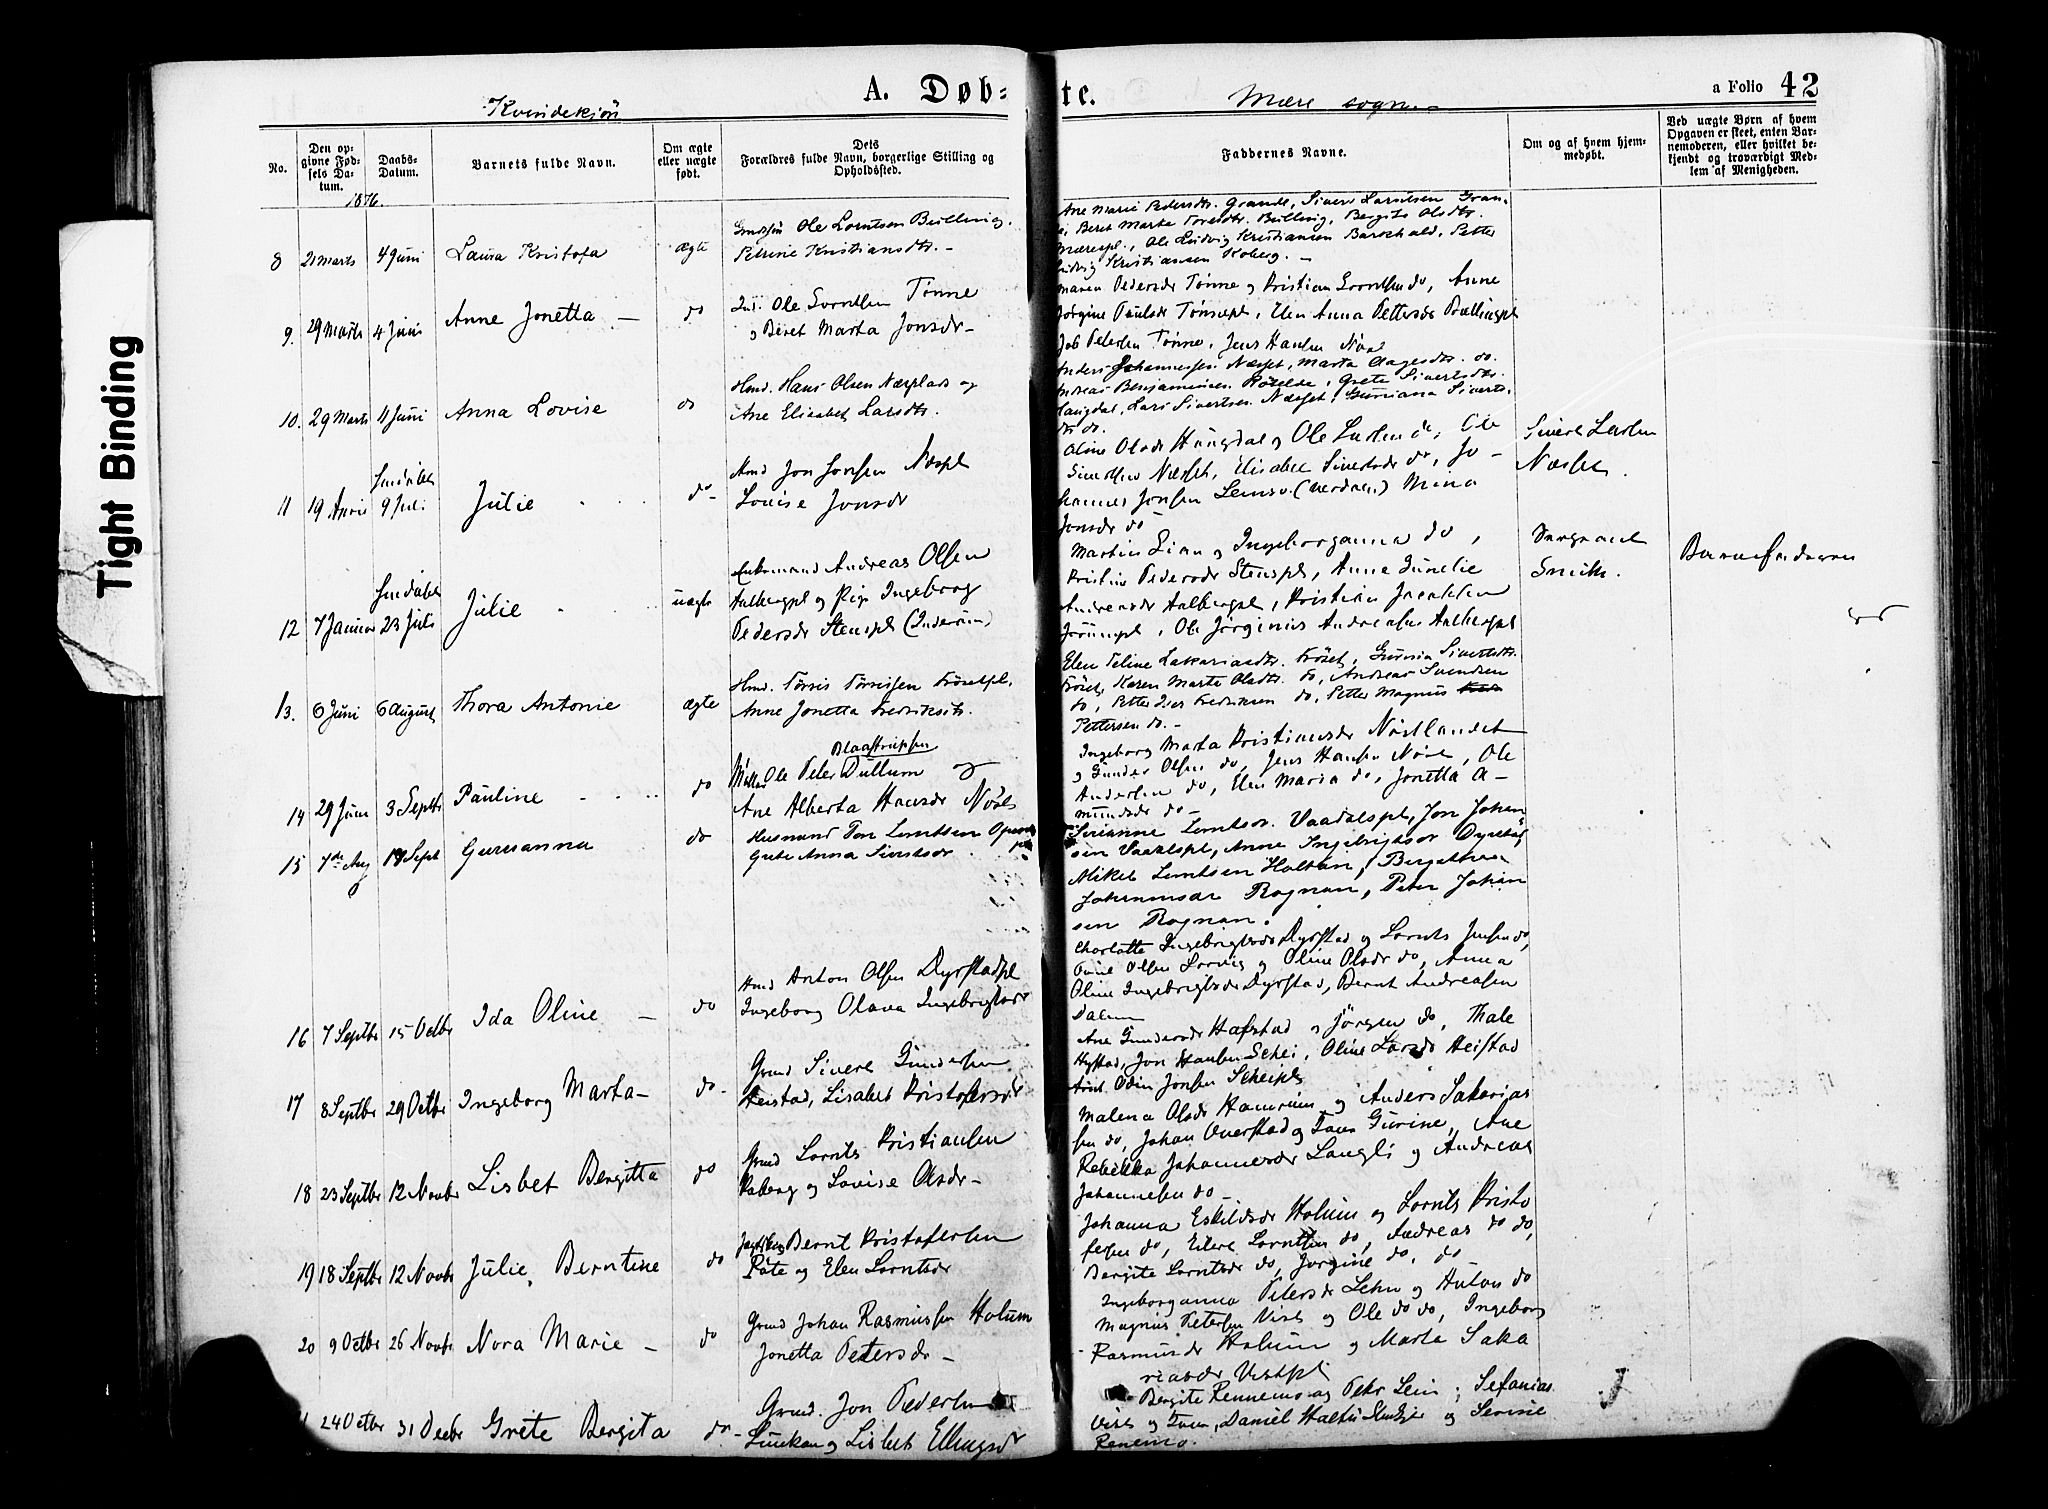 Tight Binding
A. Døb= te.
a Folio 42
Kvindekjøn
Mære sogn.
No.
Den op-
givne Fød-
sels Da-
tum.
Daabs-
Datum.
Barnets fulde Navn.
Om ægte
eller uægte
født.
Dets
Forældres fulde Navn, borgerlige Stilling og
Opholdssted.
Faddernes Navne.
Om og af hvem hjem-
medøbt.
Ved uægte Børn af hvem
Opgaven er skeet, enten Bar-
nemoderen, eller hvilket be-
kjendt og troværdigt Med-
lem af Menigheden.
1876.
8 21 Marts 4 Juni Laura Kristofa ægte
Ole Lorntsen Bulling.
Petrine Kristiansdtr. -
Ane Marie Pedersdtr. Grande, Sivert Larntsen Gran-
Beret Marta Toresdtr. Bulling, Bergite Olsdtr.
Mærespl., Ole Ludvig Kristiansen Barschald, Petter
Ludvig Kristiansen Koberg. -
9. 29 Marts 4 Juni Anne Jonetta - do
Ind. Ole Lorntsen Tønne
og Beret Marta Jonsdr -
Maren Pedersdr Tønne og Kristian Lorntsen do, Anne
Jørgine Paulsdr Tønnepl, Elen Anna Pettersdr Bullingpl
Job Petersen Tønne, Jens Hansen
10. 29 Marts 11 Juni Anna Lovise do
Hmd. Hans Olsen Næsplads og
Ane Elisabet Larsdtr.
Anders Johannessen Næsset, Marta Aagesdtr. do.
Andreas Benjaminsen, Grete Sivertsdtr.
Haugdal, Lars Sivertsen Næsset, Guriana Siverts-
dtr do.
11 19 April
9 Juli Julie do -
Hmd Jon Jonsen Næspl
Lovise Jonsdr
Oline Olsdr Haugdal og Ole Larsen do, Ole
Sivertsen Næsset, Elisabet Sivertsdr do, Jo-
hannes Jonsen (Værdalen) Mina
Jonsdr do
Sivert Larsen
Næsset.
12 7 Januar 23 Juli Julie uægte
Enkemand Andreas Olsen
Aalbergpl og Pige Ingeborg
Pedersdr Stenspl (Inderøen)
Martin Lian og Ingeborganna do,
Kristine Pedersdr Stenspl, Anne Gunelie
Andreasdr Aalbergpl, Kristian Jacobsen
, Ole Jørginius Andreasen Aalbergpl
Sergeant
Smith.
Barnefaderen
13. 6 Juni 6 August Thora Antonie ægte
Hmd. Tørris Tørrissen Frøsetpl.
Anne Jonetta Fredriksdtr.
Elen Peline Zakariasdtr. Frøset, Gurina Sivertsdtr.
Frøset, Karen Marta Olsdtr. do, Andreas Svendsen
do, Petter Fredriksen do, Petter Magnus
Pettersen do. -
14 29 Juni 3 Septbr Pauline do
Ole Peter Dullum og
Ane Alberta Hansdr
Ingeborg Marta Kristiansdr Nøstlandet
og Gunder Olsen do, Jens Hansen, Ole
Andersen do, Elen Maria do, Jonetta A-
mundsdr do -
15 7de Aug 17 Sept Gurianna do
Husmand Tore Lorntsen
Grete Anna Sivertsdr
Serianne Lorntsdr. Vaadalspl, Jon Johan-
sen Vaadalspl, Anne Ingebrigtsdr Dyrstad,
Mikal Lorntsen Holtan,
Johannesdr Rognan, Peter Johan
sen Rognan.
16 7 Septbr 15 Octbr Ida Oline - do
Hmd Anton Olsen Dyrstadpl
Ingeborg Olava Ingebrigtsdr
Charlotte Ingebrigtsdr Dyrstad og Lornts Jensen do,
Olsen og Oline Olsdr do, Anna
Oline Ingebrigtsdr Dyrstad, Bernt Andreasen
Dalem
17 8 Septbr 29 Octbr Ingeborg Marta - do -
Grmd Sivert Gundersen
Heistad, Lisabet Kristofersdr
Ane Gundersdr Hafstad og Jørgen do, Thale
Hystad, Jon Hansen Schei, Oline Larsdr Heistad
Arnt Odin Jonsen Scheipl
18 23 Septbr 12 Novbr Lisbet Bergitta do
Grmd Lornts Kristiansen
Koberg og Lovise Olsdr -
Malena Olsdr Hamrum og Anders Sakarias
sen do, Johan Overstad og Gurine, Ane
Rebekka Johannesdr Langli og Andreas
Johannesen do -
19 18 Septbr 12 Novbr Julie Berntine do
Bernt Kristofersen
og Elen Lorntsdr
Johanna Eskildsdr Holum og Lornts Kristo
fersen do, Eilert Lorntsen do, Andreas do do,
Bergite Lorntsdr do, Jorgine do, do
20 9 Octbr 26 Novbr Nora Marie - do
Grmd Johan Rasmussen Holum
Jonetta Petersdr -
Ingeborganna Petersdr Lehn og Anton do
Magnus Petersen Vist og Ole do do, Ingeborg
Rasmusdr Holum og Marta Saka
riasdr Vistpl
24 Octbr 31 Decbr Grete Bergita do -
Grmd. Jon Pedersen
og Lisbet Ellingsdr
Bergite Rennemo og Petr Lein, Sefanias
Vist og, Daniel og Serine
Renemo.